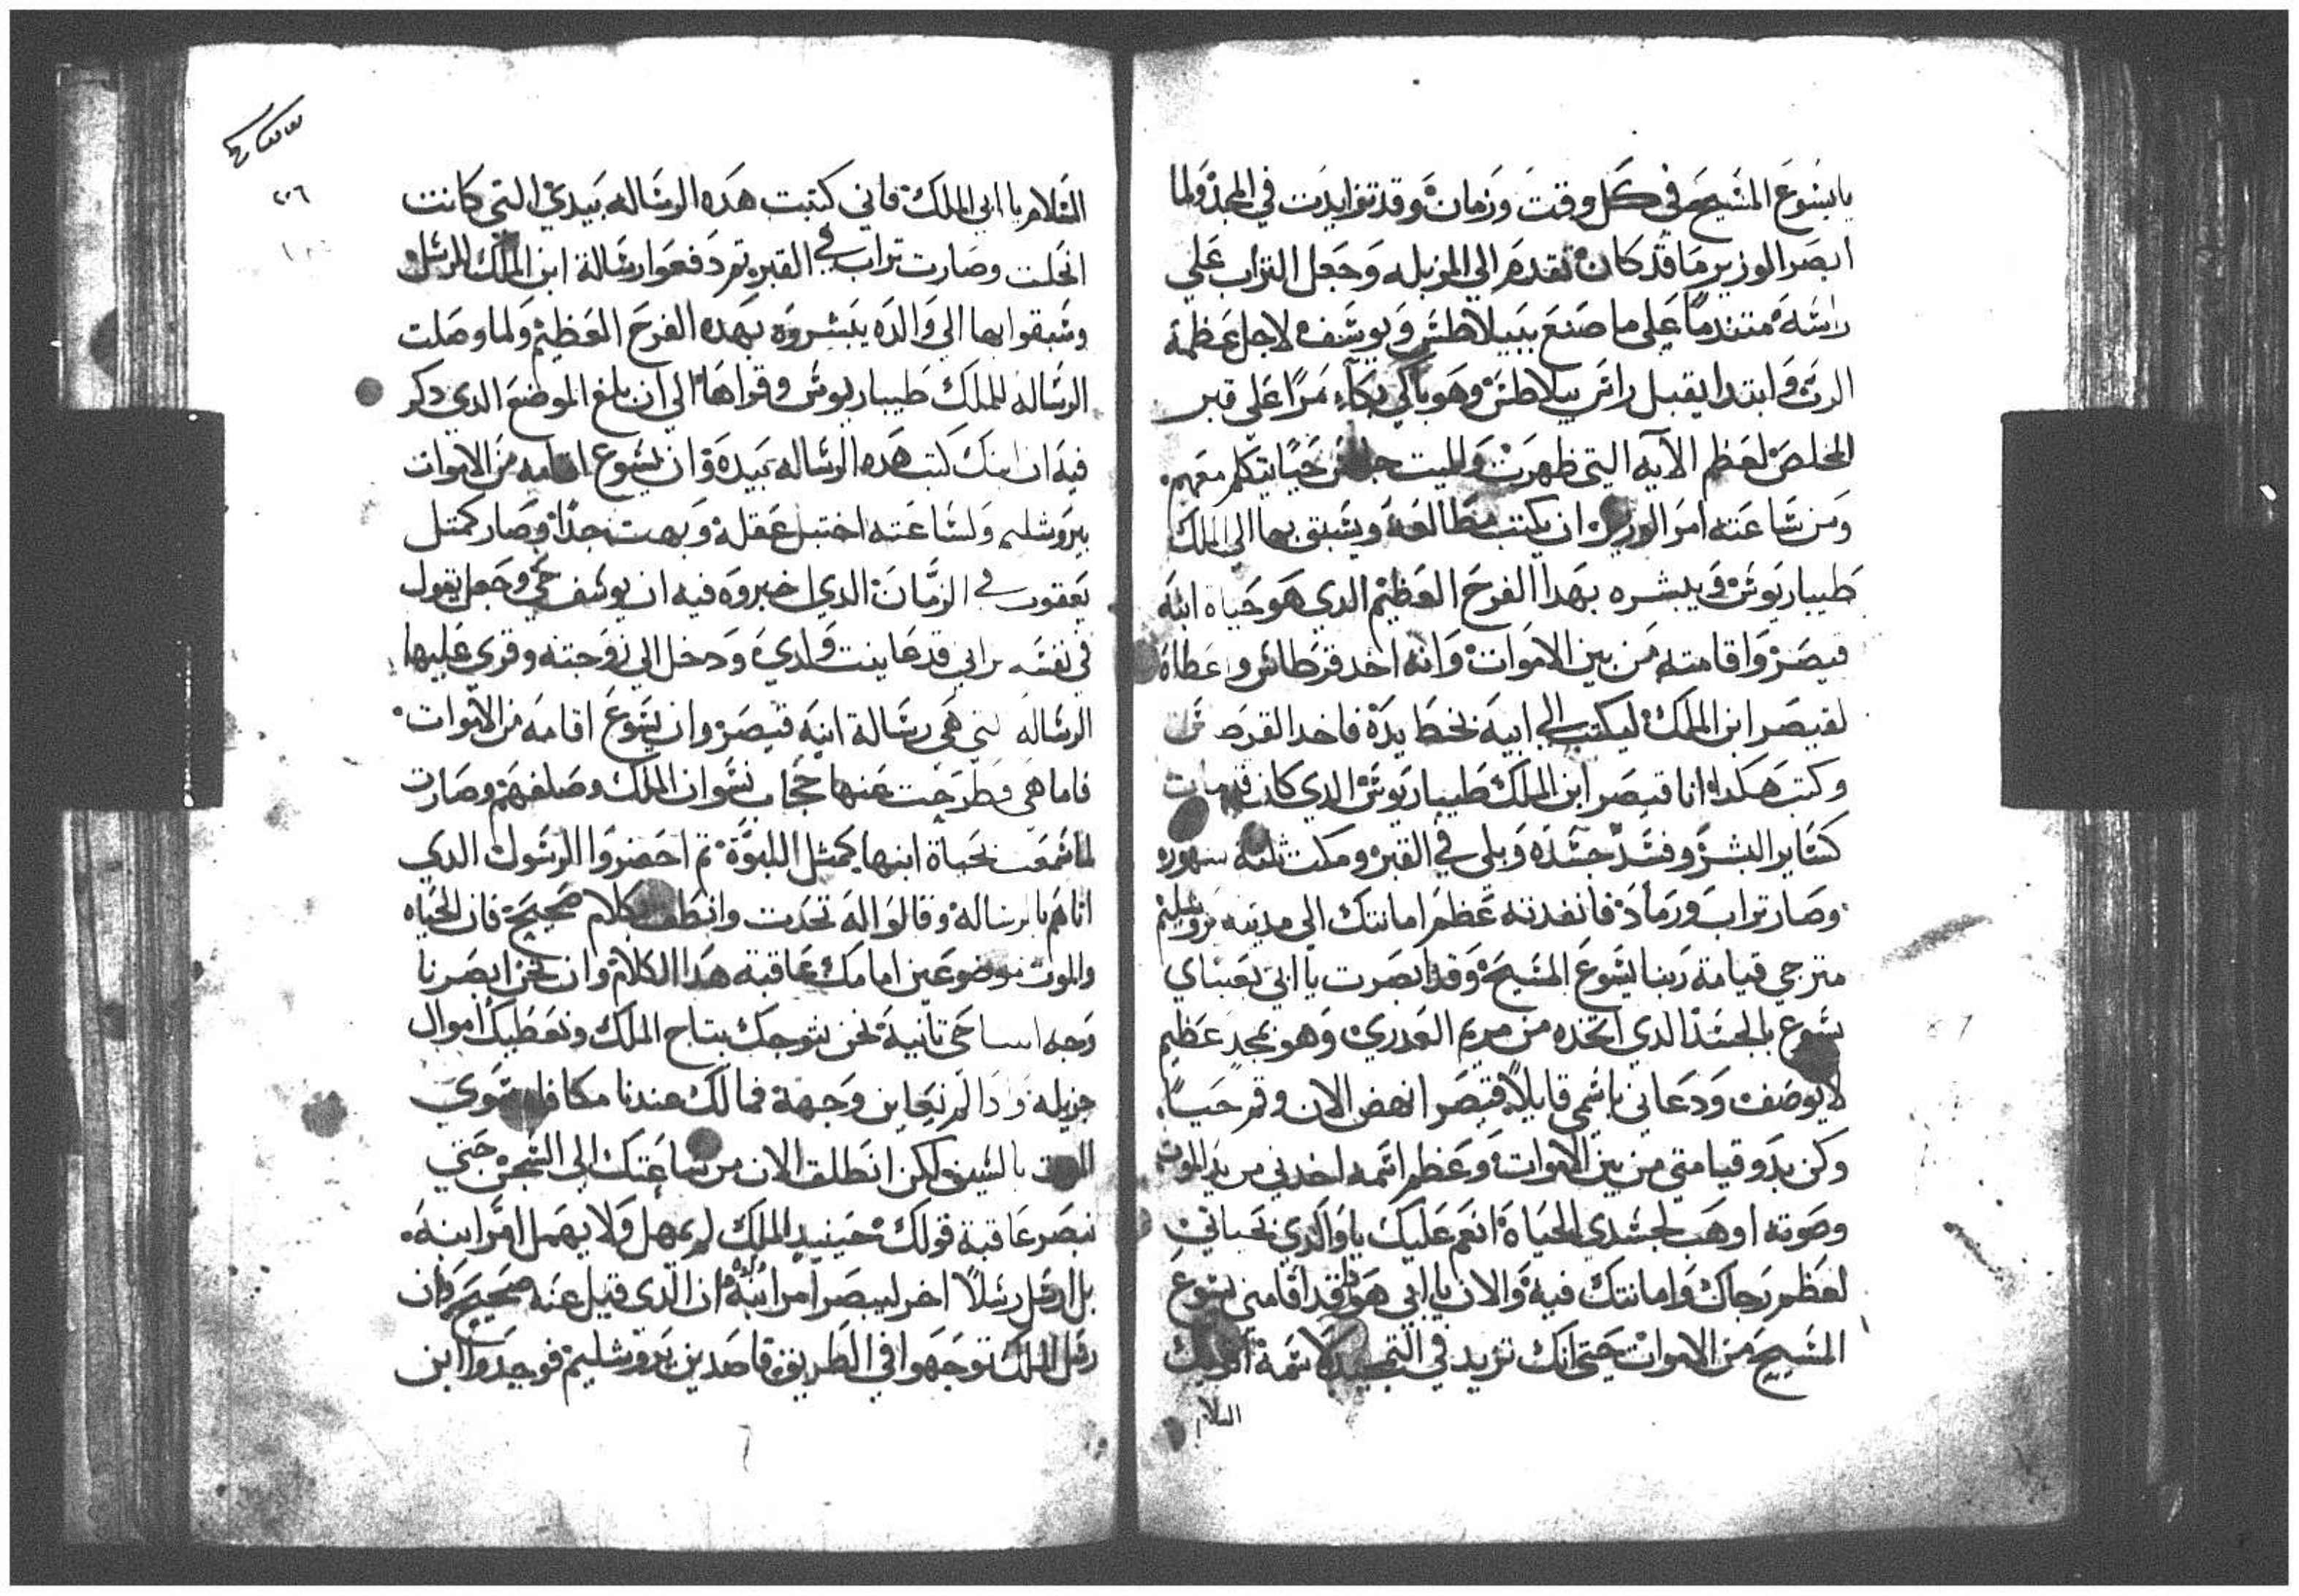 يا يسوع المسيح في كل وقت وزمان وقد تزايدت في المجد ولما
ابصر الوزير ما قد كان تقدم الي المزبله وجعل التراب علي
راسه متندما علي ما صنع ببيلاطس وبيوسف لاجل عظمة
الرب وابتدا يقبل راس بيلاطس وهو باكي بكاء مرا علي قبر
المخلص لعظم الآيه التي ظهرت والميت جالس حيا يتكلم معهم
ومن ساعته امر الوزير ان يكتب مطالعه ويسبق بها الي الملك
طيباريوس ويبشره بهدا الفرح العظيم الدي هو حياه ابنه
قيصر واقامته من بين الاموات وانه اخد قرطاس واعطاه
لقيصر ابن الملك ليكتب الي ابيه بخط يده فاخد القرطاس
وكتب هكدا انا قيصر ابن الملك طيباريوس الدي كان قد مات
كساير البشر وفسد جسده وبلي في القبر ومكت تلته شهوره
وصار تراب ورماد فانفدته عظم امانتك الي مدينه يروشليم
مترجي قيامة ربنا يسوع المسيح وقد ابصرت يا ابي بعيناي
يسوع بالجسد الدي اتخده من مريم العدري وهو بمجد عظيم
لا يوصف ودعاني باسمي قايلا قيصر انهض الان وقم حيا
وكن بدو قيامتي من بين الاموات وعظم اسمه اخدني من يد الموت
وصوته اوهب لجسدي الحياة انعم عليك يا والدي بحياتي
لعظم رجاك وامانتك فيه والان يا ابي هودا قد اقامني يسوع
المسيح من الاموات حتي انك تزيد في التمجيد لاسمه
السلام
٢٠٦
السلام يا ابي الملك فاني كتبت هده الرساله بيدي التي كانت
انحلت وصارت تراب في القبر تم دفعوا رسالة ابن الملك للرسل
وسبقوا بها الي والده يبشروه بهده الفرح العظيم ولما وصلت
الرساله للملك طيباريوس وقراها الي ان بلغ الموضع الدي دكر
فيه ان ابنك كتب هده الرساله بيده وان يسوع اقامه من الاموات
بيروشليم ولساعته اختبل عقله وبهت جدا وصار كمتل
يعقوب في الزمان الدي اخبروه فيه ان يوسف حي وجعل يقول
في نفسه تراني قد عاينت ولدي ودخل الي زوجته وقري عليها
الرساله التي هي رسالة ابنه قيصر وان يسوع اقامه من الاموات
فاما هي فطرحت عنها حجاب نسوان الملك وصلفهم وصارت
لما سمعت بحياة ابنها كمثل اللبوة تم احضروا الرسول الدي
اتاهم بالرساله وقالوا له تحدت وانطق بكلام صحيح فان الحياه
والموت موضوعين امامك عاقبة هدا الكلام وان نحن ابصرنا
وجه ابننا حي تانية نحن نتوجك بتاج الملك ونعطيك اموال
جزيله وادا لم نعاين وجهه فمالك عندنا مكافاه سوي
الموت بالسيف لكن انطلق الان من ساعتك الي السجن حتي
نبصر عاقبة قولك حينيد الملك لم يمهل ولا يهمل امر ابنه
بل ارسل رسلا اخر ليبصر امر ابنه ان الدي قيل عنه صحيح وان
رسل الملك توجهوا في الطريق قاصدين يروشليم فوجدوا ابن